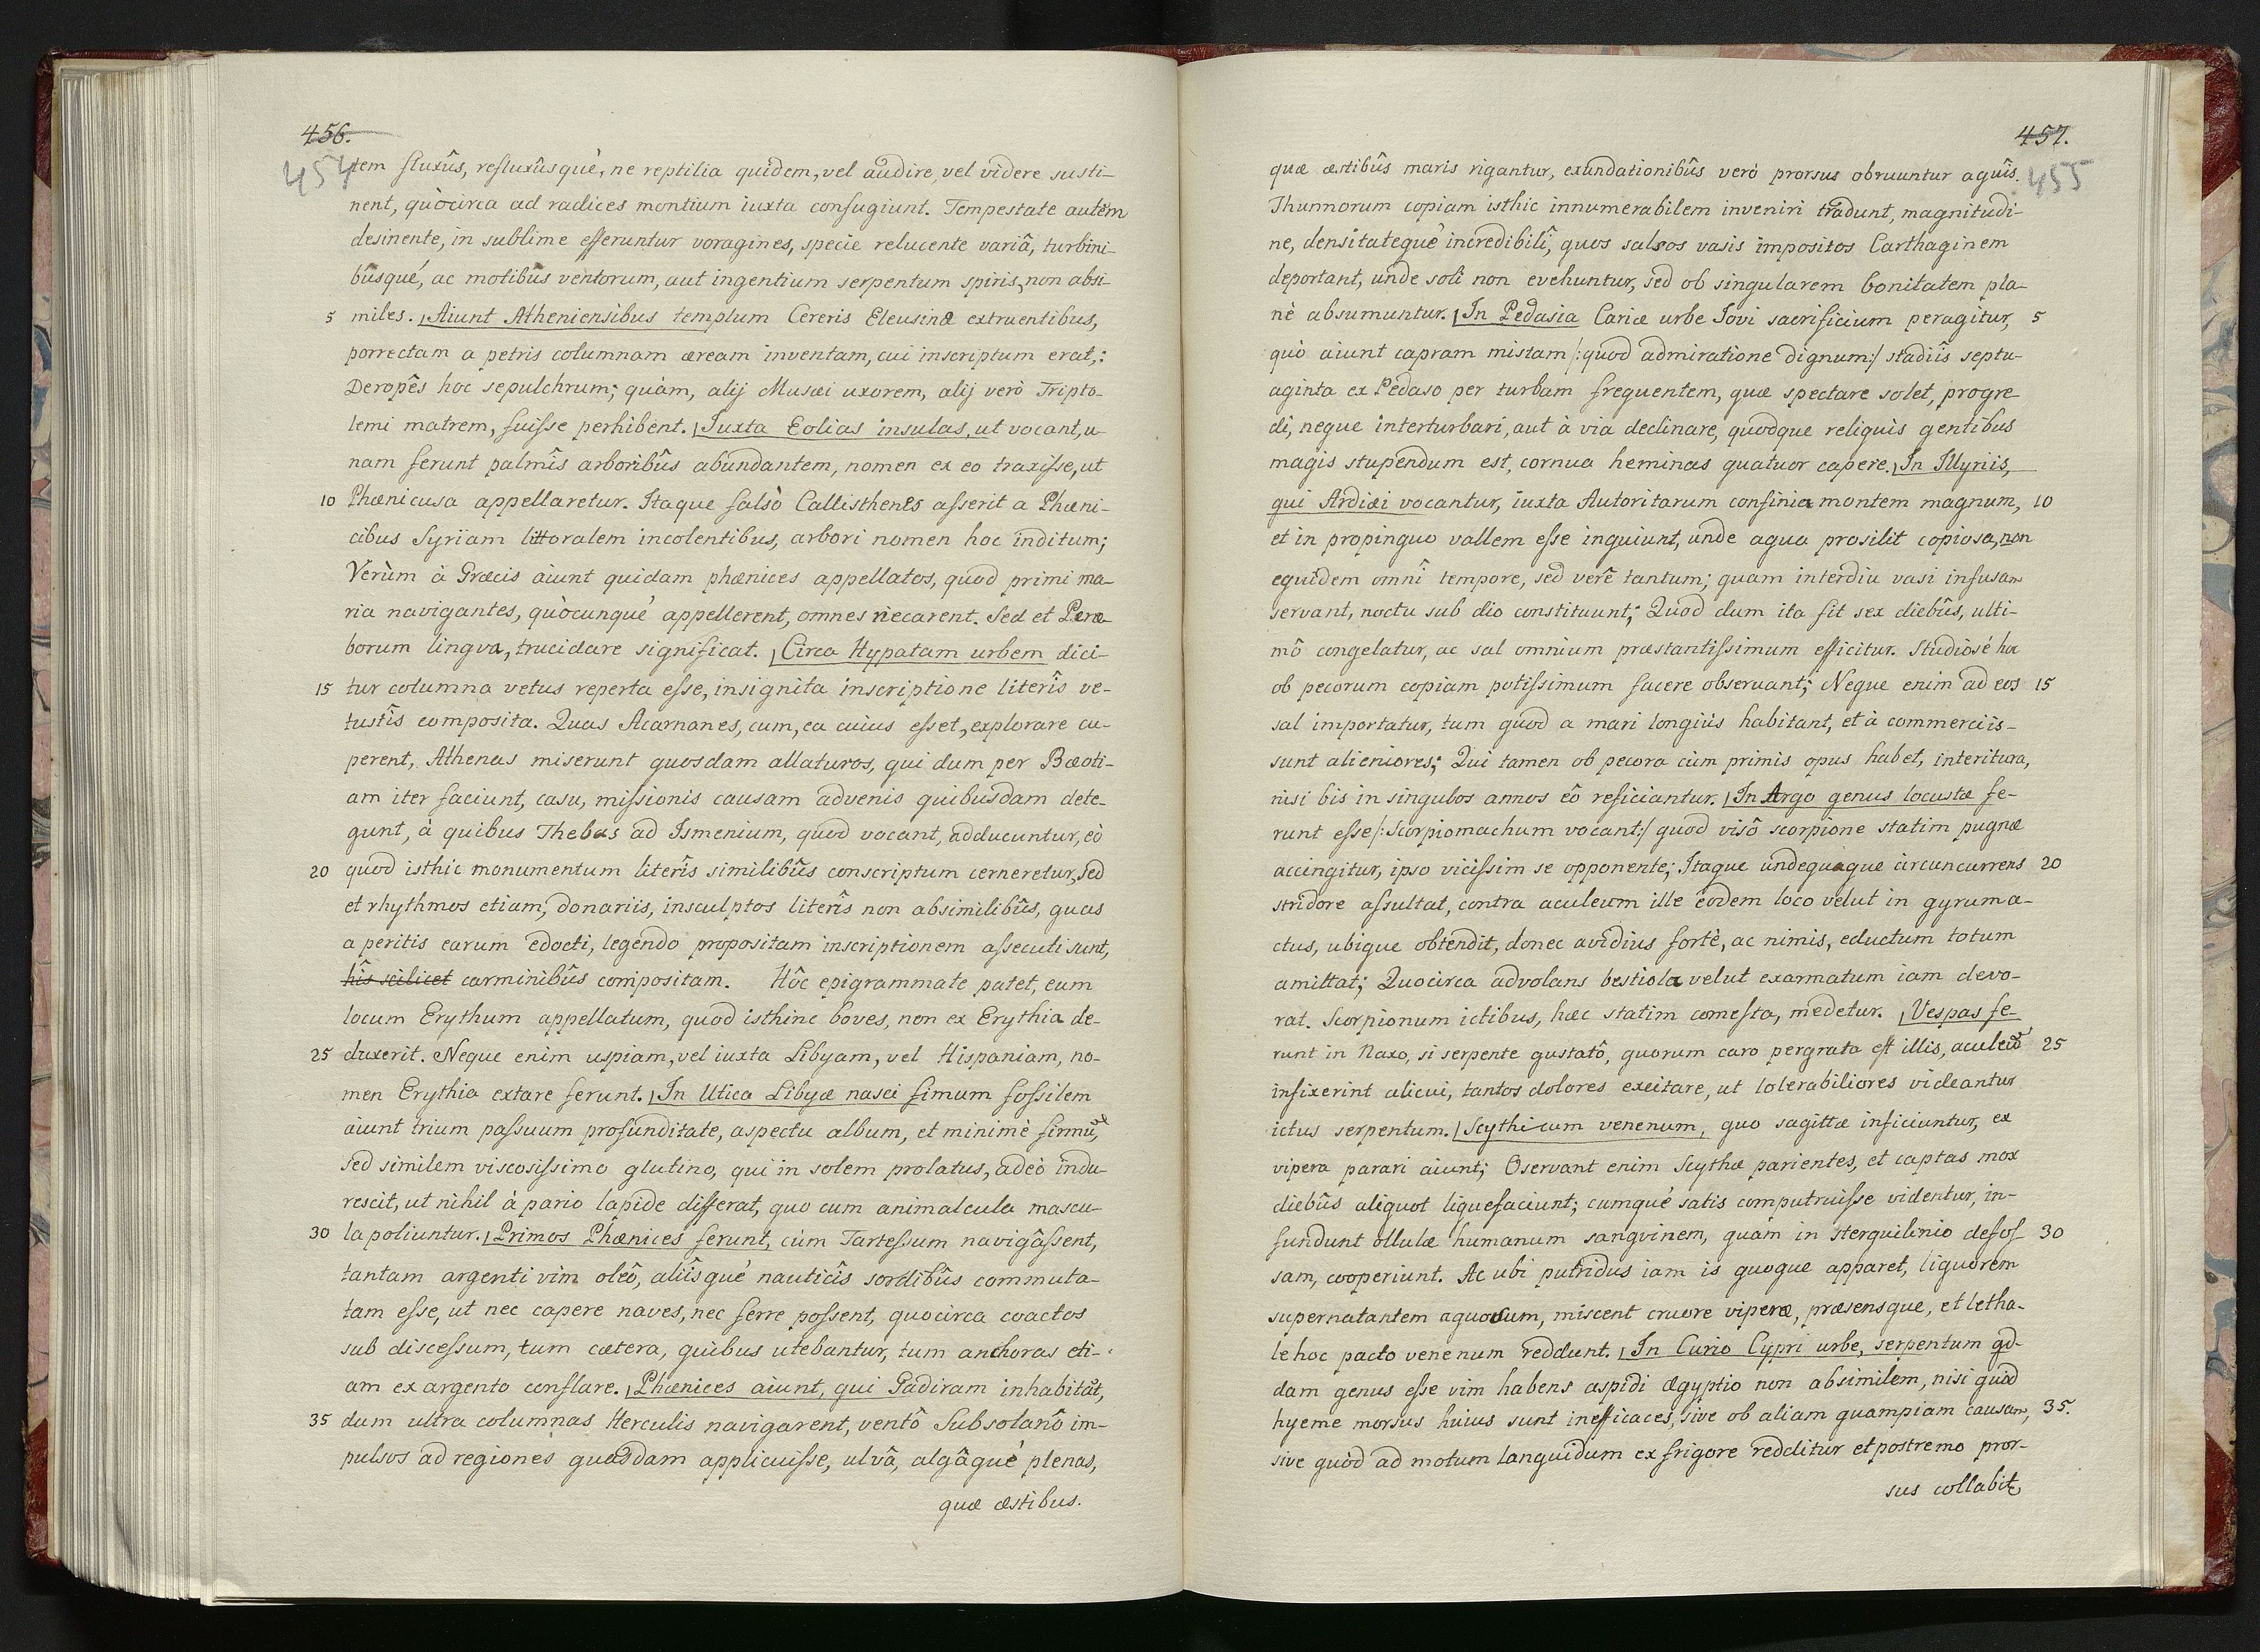 456.
454
tem fluxûs, refluxûsqué, ne reptilia quidem, vel audire, vel videre susti-
nent, quòcirca ad radices montium iuxta confugiunt. Tempestate autem
desinente, in sublime efferuntur voragines, specie relucente variâ, turbini-
busqué, ac motibûs ventorum, aut ingentium serpentum spiris, non absi-
5 miles. Aiunt Atheniensibus templum Cereris Eleusinæ extruentibus,
porrectam a petris columnam æream inventam, cui inscriptum erat;
Deropês hoc sepulchrum; quàm, alij Musæi uxorem, alij verò Tripto-
lemi matrem, fuisse perhibent. Iuxta Eolias insulas, ut vocant, u-
nam ferunt palmîs arboribûs abundantem, nomen ex eo traxisse, ut
10 Phænicusa appellaretur. Itaque falsò Callisthenes asserit a Phæni-
cibus Syriam littoralem incolentibus, arbori nomen hoc inditum;
Verùm à Græcis aiunt quidam phænices appellatos, quod primi ma-
ria navigantes, quòcunqué appellerent, omnes necarent. Sed et Peræ-
borum lingva, trucidare significat. Circa Hypatam urbem dici-
15 tur columna vetus reperta esse, insignita inscriptione literîs ve-
tustîs composita. Quas Acarnanes, cum, ea cuius esset, explorare cu-
perent, Athenas miserunt quosdam allaturos, qui dum per Bæoti-
am iter faciunt, casu, missionis causam advenis quibusdam dete-
gunt, à quibus Thebas ad Ismenium, quod vocant, adducuntur, eò
20 quod isthic monumentum literîs similibûs conscriptum cerneretur, sed
et rhythmos etiam, donariis, insculptos literîs non absimilibûs, quas
a peritis earum edocti, legendo propositam inscriptionem assecuti sunt,
hîs scilicet carminibûs compositam. Hôc epigrammate patet, eum
locum Erythum appellatum, quod isthinc boves, non ex Erythia de-
25 duxerit. Neque enim uspiam, vel iuxta Libyam, vel Hispaniam, no-
men Erythia extare ferunt. In Utica Libyæ nasci fimum fossilem
aiunt trium passuum profunditate, aspectu album, et minimè firmũ,
sed similem viscosissimo glutino, qui in solem prolatus, adeò indu-
rescit, ut nihil à pario lapide differat, quo cum animalcula mascu-
30 la poliuntur. Primos Phænices ferunt, cùm Tartessum navigâssent,
tantam argenti vim oleô, aliîsqué nauticîs sordibûs commuta-
tam esse, ut nec capere naves, nec ferre possent, quocirca coactos
sub discessum, tum cætera, quibus utebantur, tum anchoras eti-
am ex argento conflare. Phænices aiunt, qui Gadiram inhabitãt,
35 dum ultra columnas Herculis navigarent, ventô Subsolanô im-
pulsos ad regiones quasdam applicuisse, ulvâ, algâqué plenas,
quæ æstibus.
457.
455
quæ æstibûs maris rigantur, exundationibûs verò prorsus obruuntur aquîs.
Thunnorum copiam isthic innumerabilem inveniri tradunt, magnitudi-
ne, densitatequé incredibilî, quos salsos vasis impositos Carthaginem
deportant, unde soli non evehuntur, sed ob singularem bonitatem pla-
nè absumuntur. In Pedasia Cariæ urbe Iovi sacrificium peragitur, 5
quò aiunt capram mistam /:quod admiratione dignum:/ stadiîs septu-
aginta ex Pedaso per turbam frequentem, quæ spectare solet, progre
di, neque interturbari, aut à via declinare, quodque reliquis gentibus
magis stupendum est, cornua heminas quatuor capere. In Illyriis,
qui Ardiæi vocantur, iuxta Autoritarum confinia montem magnum, 10
et in propinquo vallem esse inquiunt, unde aqua prosilit copiosa, non
equidem omnî tempore, sed verê tantum; quam interdiu vasi infusam
servant, noctu sub dio constituunt; Quod dum ita fit sex diebûs, ulti-
mô congelatur, ac sal omnium præstantissimum efficitur. Studiosè hoc
ob pecorum copiam potissimum facere observant; Neque enim ad eos 15
sal importatur, tum quod a mari longiùs habitant, et à commerciis-
sunt alieniores; Qui tamen ob pecora cùm primis opus habet, interitura,
nisi bis in singulos annos eô reficiantur. In Argo genus locustæ fe-
runt esse /:Scorpiomachum vocant:/ quod visô scorpione statim pugnæ
accingitur, ipso vicissim se opponente; Itaque undequaque circuncurrens 20
stridore assultat, contra aculeum ille eodem loco velut in gyrum a-
ctus, ubique obtendit, donec avidius fortè, ac nimis, eductum totum
amittat; Quocirca advolans bestiola velut exarmatum iam devo-
rat. Scorpionum ictibus, hæc statim comesta, medetur. Vespas fe-
runt in Naxo, si serpente gustatô, quorum caro pergrata est illis, aculeũ 25
infixerint alicui, tantos dolores excitare, ut tolerabiliores videantur
ictus serpentum. Scythicum venenum, quo sagittæ inficiuntur, ex
vipera parari aiunt; Oservant enim Scythæ parientes, et captas mox
diebûs aliquot liquefaciunt; cumqué satis computruisse videntur, in-
fundunt ollulæ humanum sangvinem, quàm in sterquilinio defos- 30
sam, cooperiunt. Ac ubi putridus iam is quoque apparet, liquorem
supernatantem aquosum, miscent cruore viperæ, præsensque, et letha-
le hoc pacto venenum reddunt. In Curio Cypri urbe, serpentum qd-
dam genus esse vim habens aspidi ægyptio non absimilem, nisi quod
hyeme morsus huius sunt inefficaces, sive ob aliam quampiam causam, 35.
sive quòd ad motum languidum ex frigore redditur et postremo pror-
sus collabit